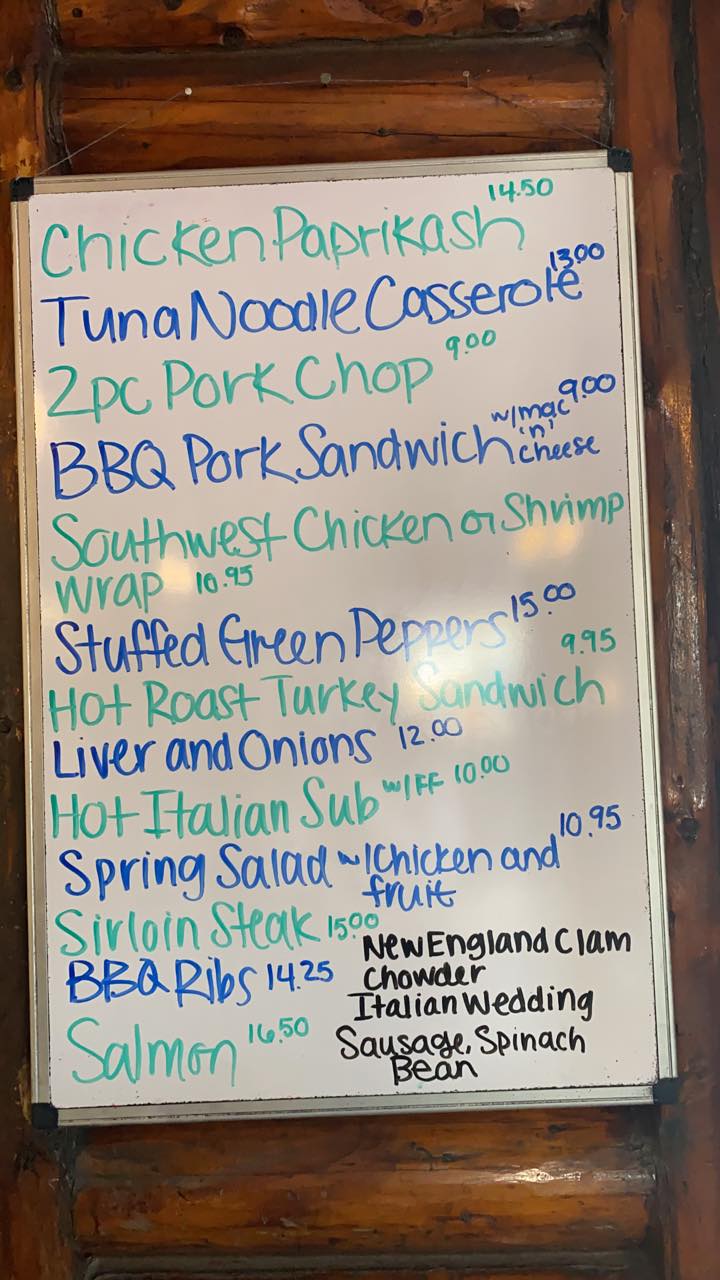 Chicken Paprikash 14.50
Tuna Noodle Casserole 13.00
2pc Pork Chop 9.00
BBQ Pork Sandwich w/mac 'n' cheese 9.00
Southwest Chicken or Shrimp
wrap 10.95
Stuffed Green Peppers 15.00
Hot Roast Turkey Sandwich 9.95
Liver and Onions 12.00
Hot Italian Sub w/FF 10.00
Spring Salad w/Chicken and 10.95
fruit
Sirloin Steak 15.00
BBQ Ribs 14.25
Salmon 16.50
New England Clam
Chowder
Italian Wedding
Sausage, Spinach
Bean